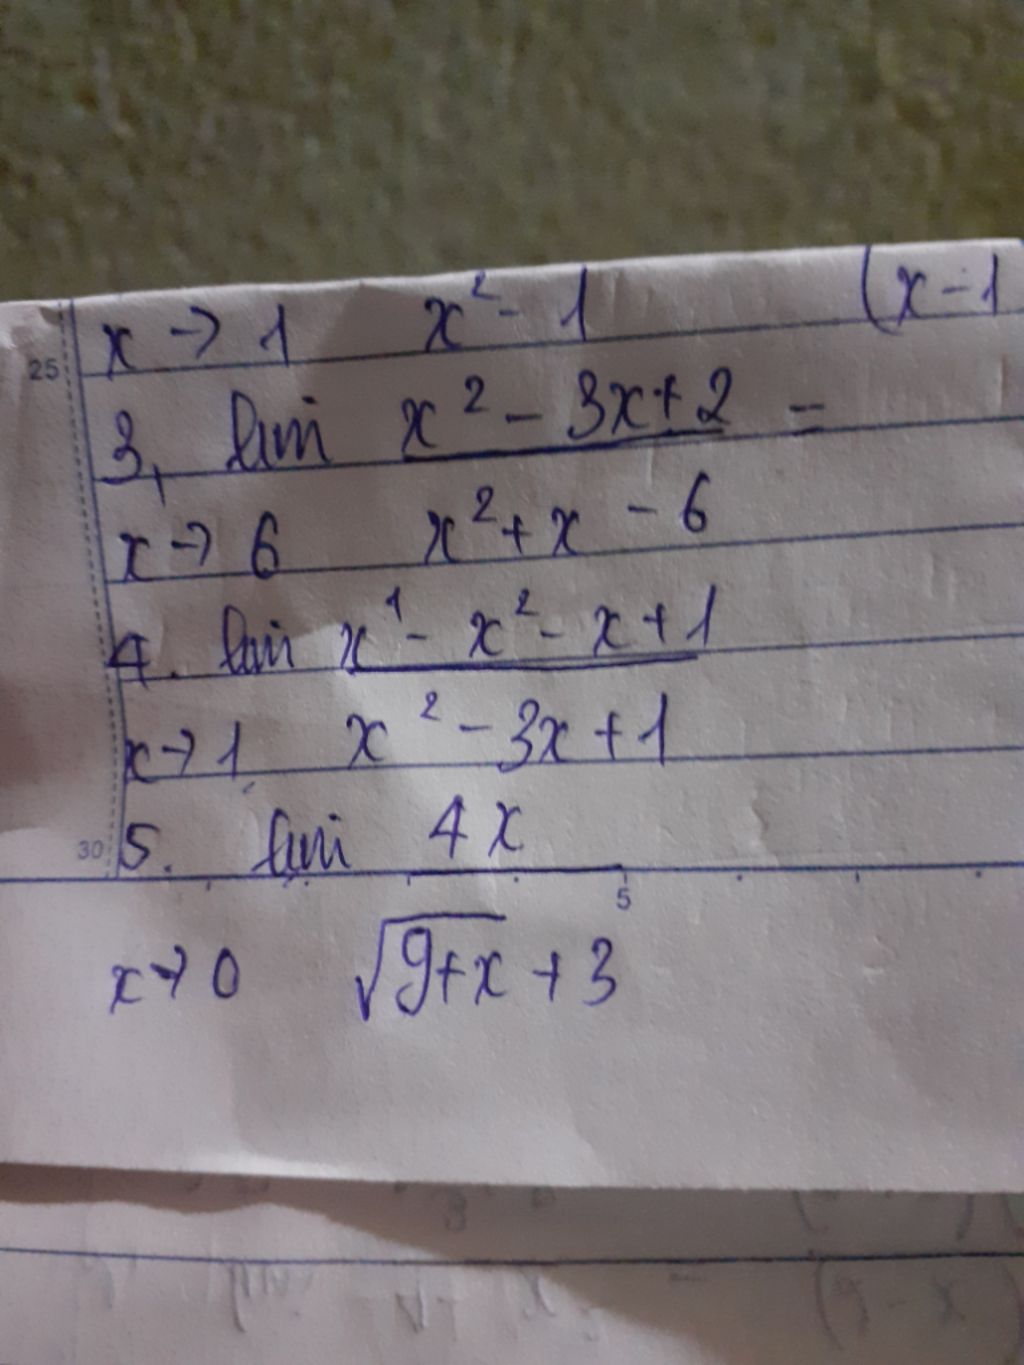 25
x → 1 x² - 1 (x - 1
3, lim x² - 3x + 2 =
x → 6 x² + x - 6
4. lim x¹ - x² - x + 1
x → 1 x² - 3x + 1
30 5. lim 4x
5
x → 0 √9+x + 3